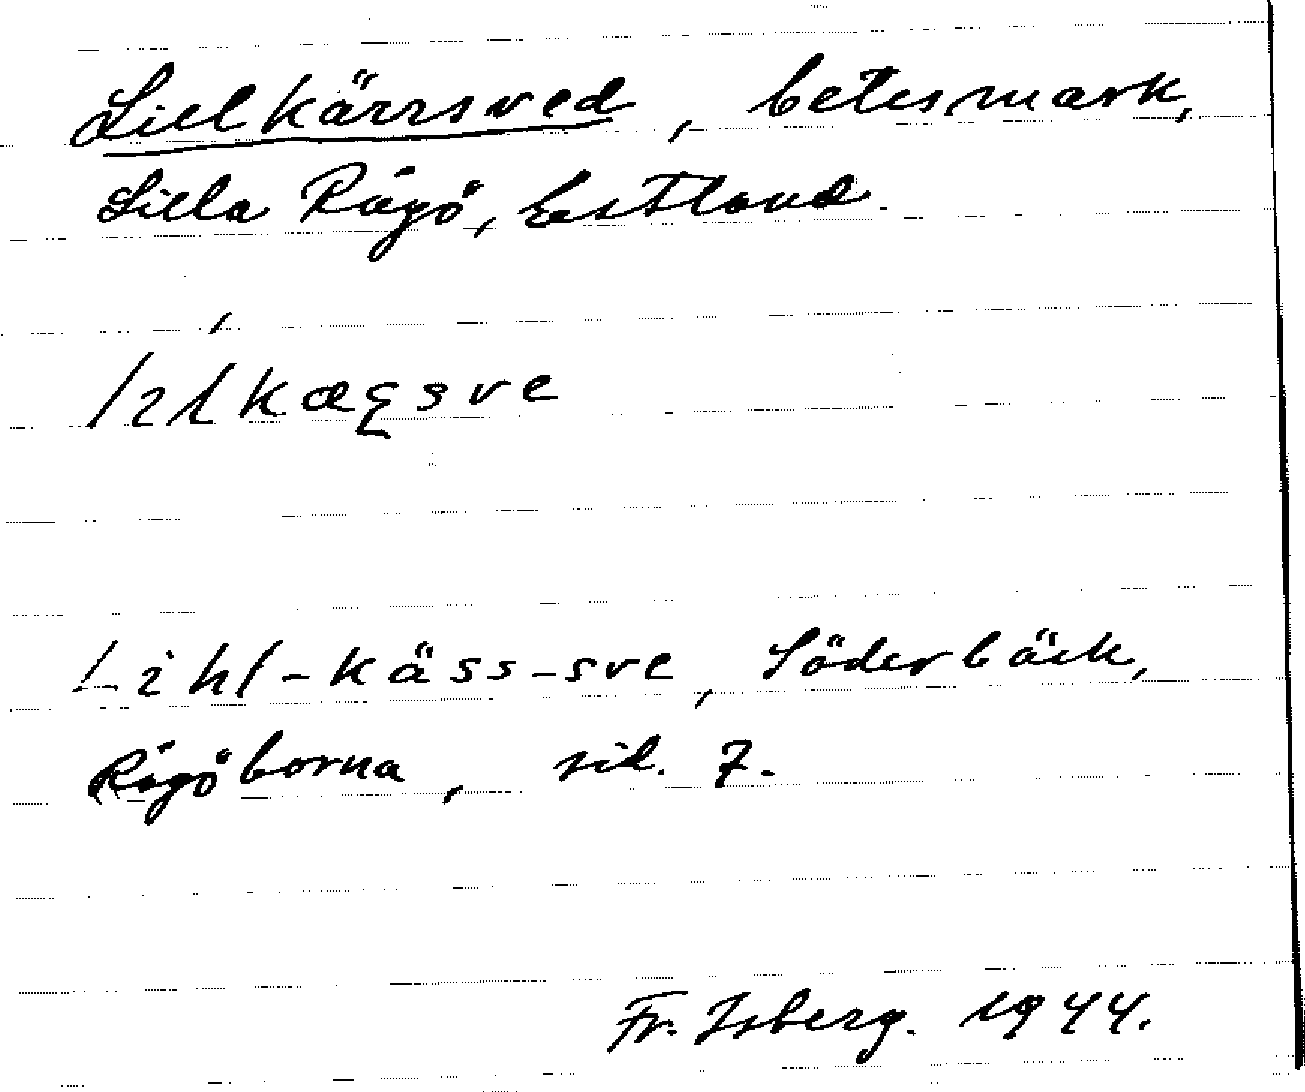 Lillkärrsved, betesmark,
Lilla Rågö, Estland.
Lihl-käss-sve, Söderbäck,
Rågöborna, sid. 7.
Fr. Isberg. 1944.